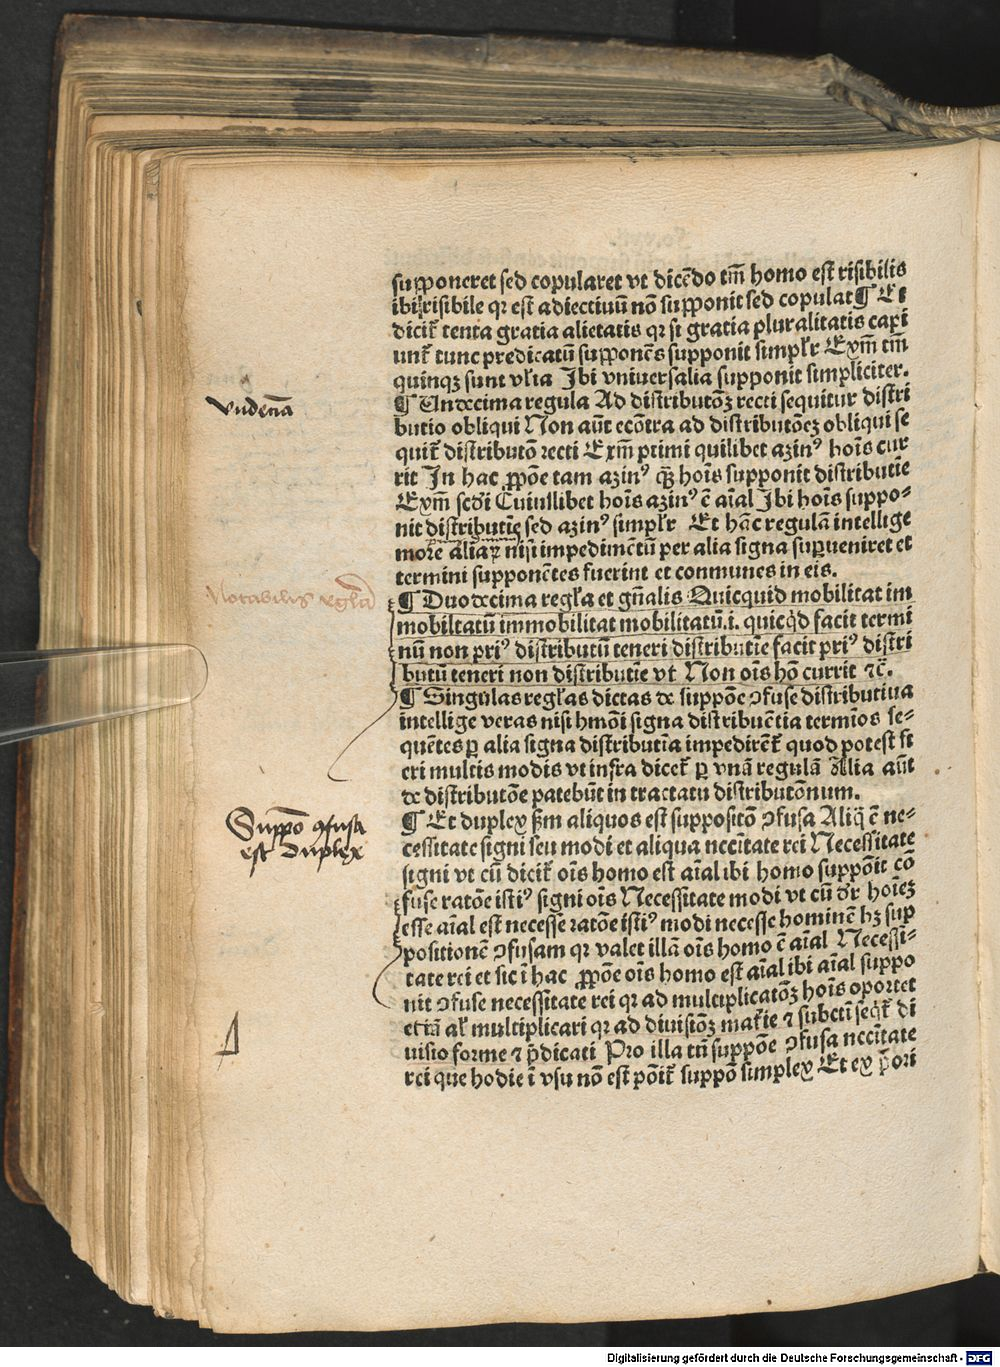 supponeret sed copularet vt dicēdo tm̄ homo est risibilis
ibi risibile qꝛ est adiectiuū nō supponit sed copulat ¶ Et
dicit᷑ tenta gratia alietatis qꝛ si gratia pluralitatis capi
unt᷑ tunc predicatū supponēs supponit simpl'r Exm̄ tm̄
quinqꝫ sunt vl'ia Ibi vniuersalia supponit simpliciter.
vndecīa
¶ Undecima regula Ad distributōꝫ recti sequitur distri
butio obliqui Non aūt ecōtra ad distributōeꝫ obliqui se
quit᷑ distributō recti Exm̄ primi quilibet azinꝰ hoīs cur
rit In hac ꝓpōe tam azinꝰ qꝫ̄ hoīs supponit distributiē
Exm̄ scd'i Cuiuslibet hoīs azinꝰ ē aīal Ibi hoīs suppo⸗
nit distributiē sed azinꝰ simpl'r Et hāc regulā intellige
more aliaꝝ nisi impedimētū per alia signa suꝑueniret et
termini supponētes fuerint et conmunes in eis.
Notabilis regl'a
¶ Duodecima regl'a et gn̄alis Quicquid mobilitat im
mobiltatū immobilitat mobilitatū.i. quicqͥd facit termi
nū non priꝰ distributū teneri distributiē facit priꝰ distri
butū teneri non distributiē vt Non oīs hō currit ⁊c̄.
¶ Singulas regl'as dictas de suppōe ꝯfuse distributiua
intellige veras nisi hmōi signa distribuētia termīos se⸗
quētes ꝑ alia signa distributīa impedirēt᷑ quod potest fi
eri multis modis vt infra dicet᷑ ꝑ vnā regulā Alia aūt
de distributōe patebūt in tractatu distributōnum.
Suppō ꝯfusa
est duplex
¶ Et duplex ẜm aliquos est suppositō ꝯfusa Aliq̄ ē ne⸗
cessitate signi seu modi et aliqua nc̄citate rei Necessitate
signi vt cū dicit᷑ oīs homo est aīal ibi homo suppōit cō
fuse ratōe istiꝰ signi oīs Necessitate modi vt cū dr̄ hoīeꝫ
esse aīal est necesse ratōe istiꝰ modi necesse hominē hꝫ sup
positionē ꝯfusam qꝛ valet illā oīs homo ē aīal Necessi⸗
tate rei et sic ī hac ꝓpōe oīs homo est aīal ibi aīal suppo
nit ꝯfuse necessitate rei qꝛ ad multiplicatōꝫ hoīs oportet
etiā al' multiplicari qꝛ ad diuisiōꝫ mat'ie ⁊ subcti seq̄t᷑ di
uisio forme ⁊ p̄dicati Pro illa tn̄ suppōe ꝯfusa nc̄citate
rei que hodie ī vsu nō est pōit᷑ suppō simplex Et ex p̄ori
Digitalisierung gefördert durch die Deutsche Forschungsgemeinschaft - DFG